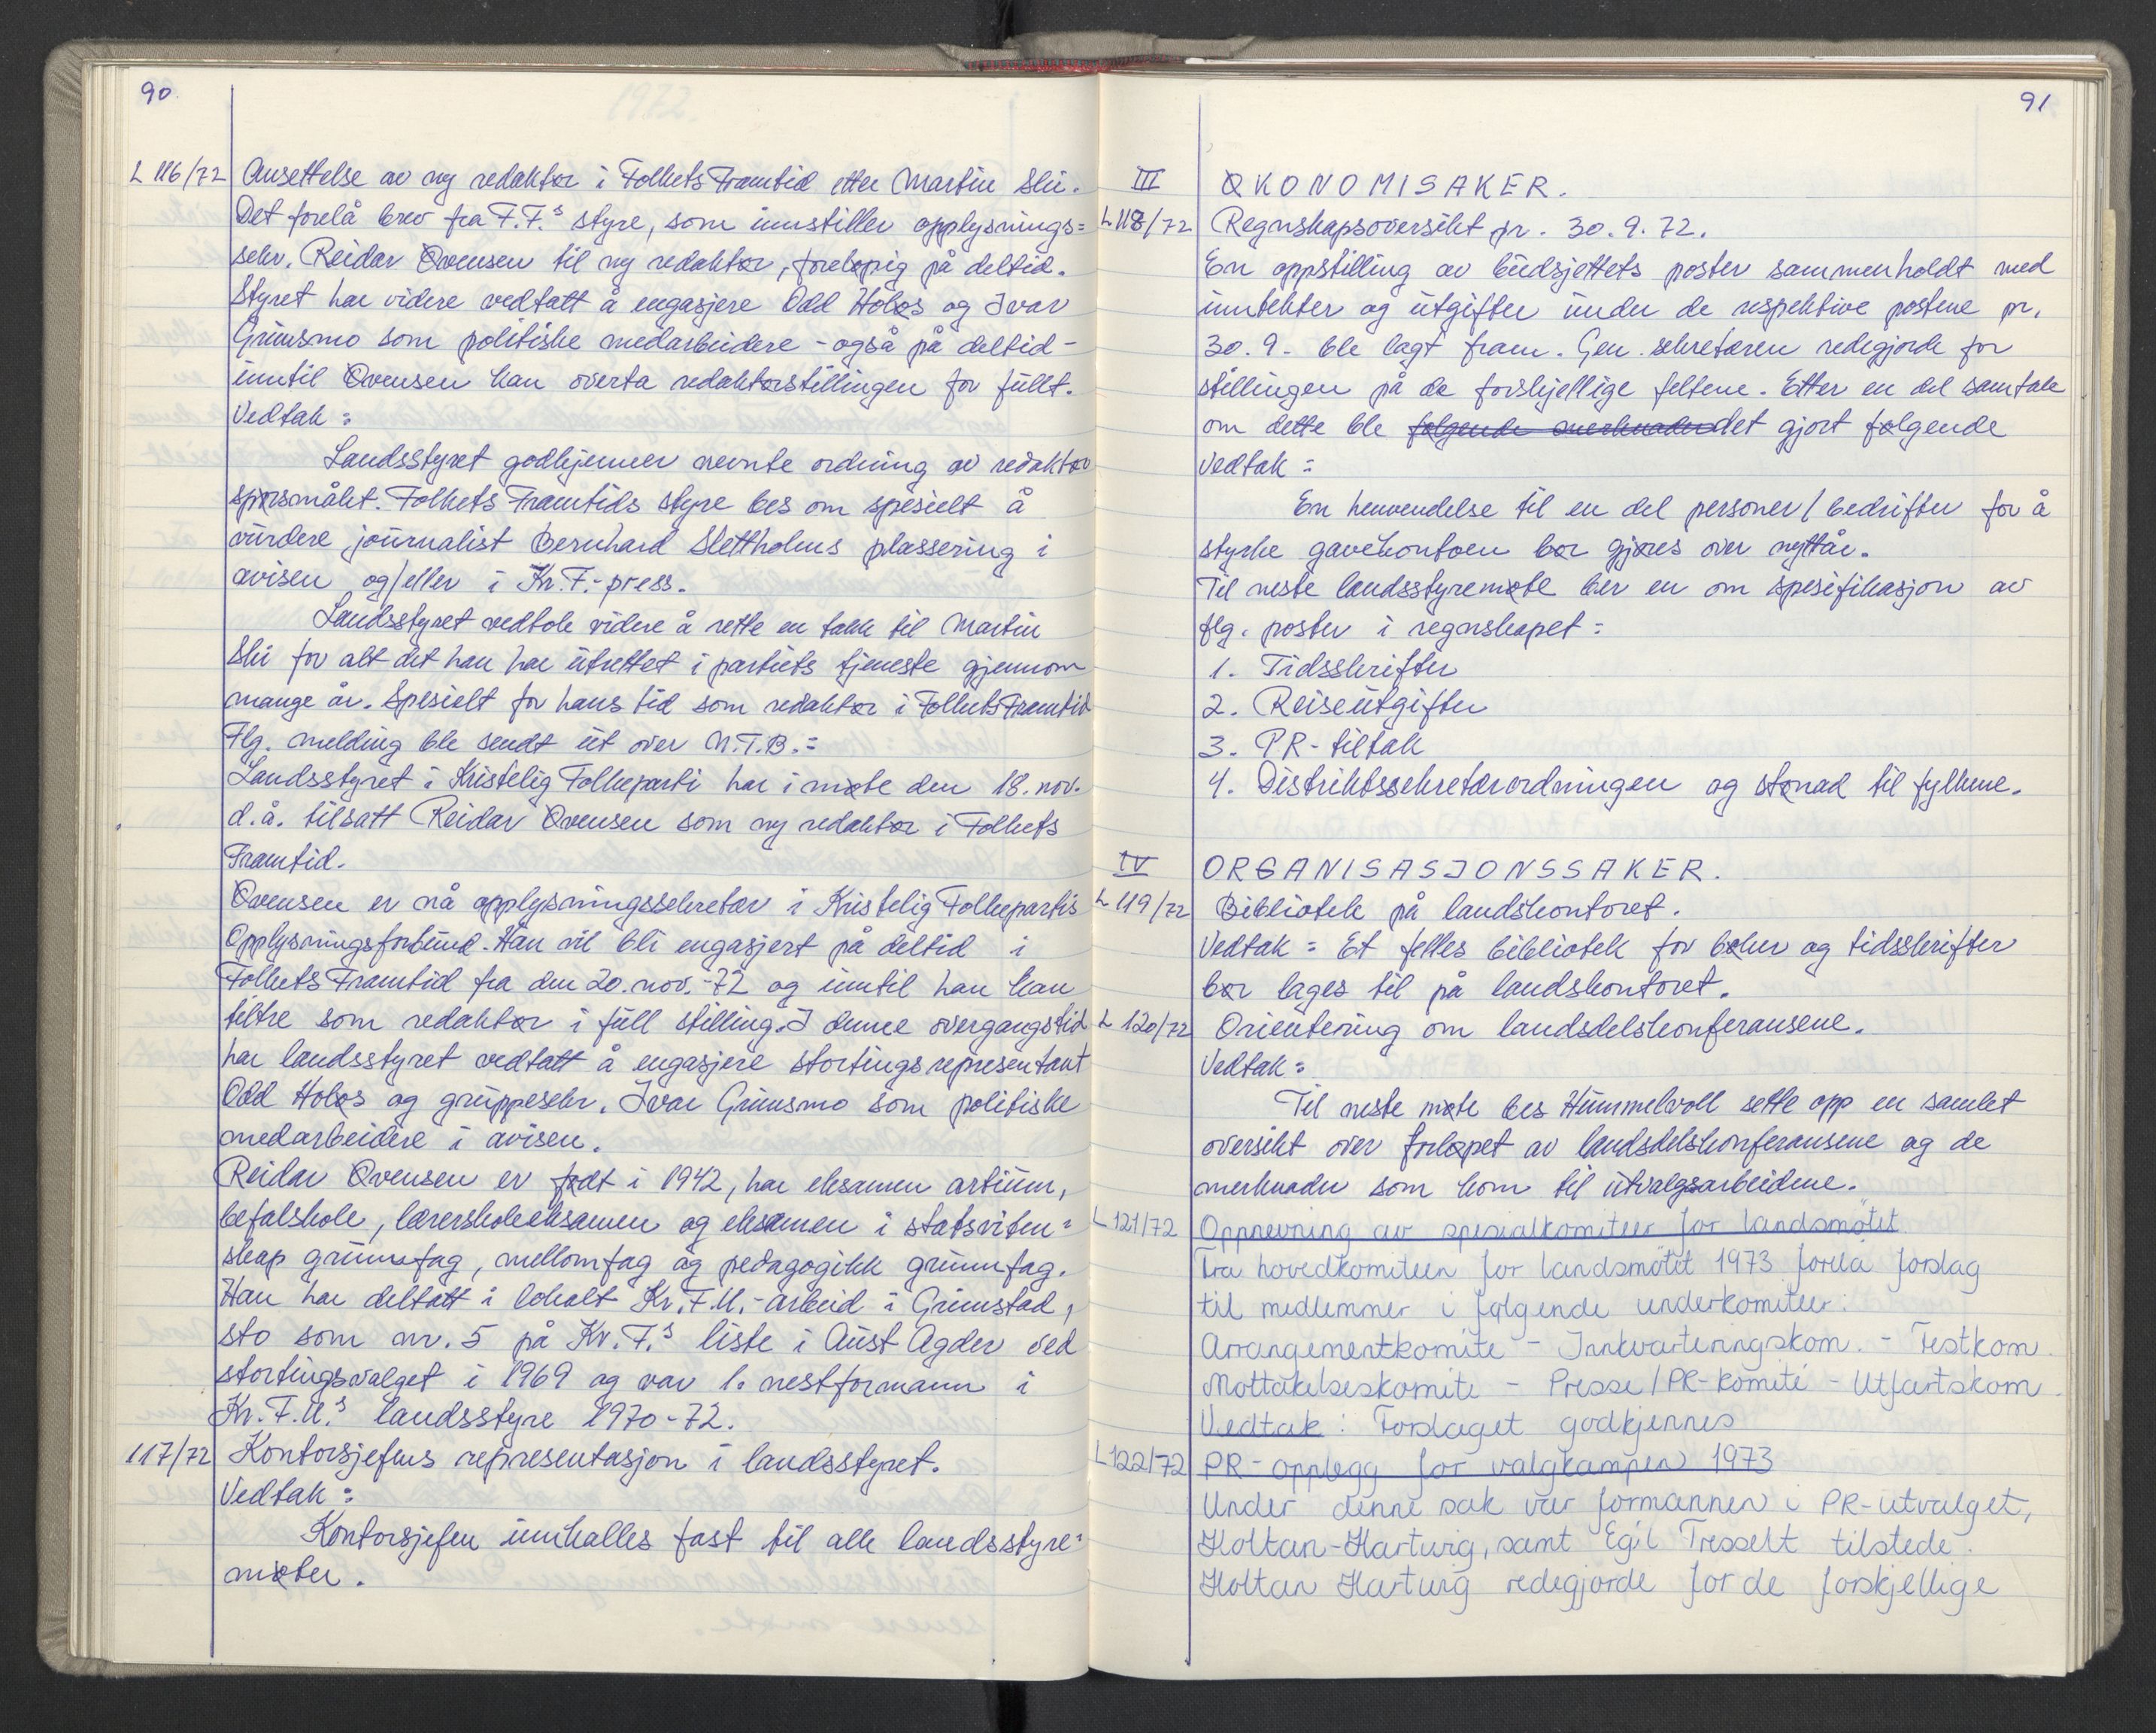 90
L 116/72 Ansettelse av ny redaktør i Folkets Framtid etter Martin Sli.
Det forelå brev fra F.F.s styre, som innstiller opplysnings=
sekr. Reidar Øvensen til ny redaktør, foreløpig på deltid.
Styret har videre vedtatt å engasjere Odd Holøs og Ivar
Grimsmo som politiske medarbeidere - også på deltid -
inntil Øvensen kan overta redaktørstillingen for fullt.
Vedtak:
Landsstyret godkjenner nevnte ordning av redaktør
spørsmålet. Folkets Framtids styre bes om spesielt å
vurdere journalist Bernhard Slettholms plassering i
avisen og/eller i Kr.F.-press.
Landsstyret vedtok videre å rette en takk til Martin
Sli for alt det han har utrettet i partiets tjeneste gjennom
mange år. Spesielt for hans tid som redaktør i Folkets Framtid
Flg. melding ble sendt ut over N.T.B.:
Landsstyret i Kristelig Folkeparti har i møte den 18. nov.
d.å. tilsatt Reidar Øvensen som ny redaktør i Folkets
Framtid.
Øvensen er nå opplysningssekretær i Kristelig Folkepartis
Opplysningsforbund. Han vil bli engasjert på deltid i
Folkets Framtid fra den 20. nov. -72 og inntil han kan
tiltre som redaktør i full stilling. I denne overgangstid
har landsstyret vedtatt å engasjere stortingsrepresentant
Odd Holøs og gruppesekr. Ivar Grimsmo som politiske
medarbeidere i avisen.
Reidar Øvensen er født i 1942, har eksamen artium,
befalskole, lærerskoleeksamen og eksamen i statsviten=
skap grunnfag, mellomfag og pedagogikk grunnfag.
Han har deltatt i lokalt Kr.F.U.-arbeid i Grimstad,
sto som nr. 5 på Kr.F.s liste i Aust Agder ved
stortingsvalget i 1969 og var 1. nestformann i
Kr.F.U.s landsstyre 1970-72.
117/72 Kontorsjefens representasjon i landsstyret.
Vedtak:
Kontorsjefen innkalles fast til alle landsstyre=
møter.
91
III ØKONOMISAKER.
L 118/72 Regnskapsoversikt pr. 30.9.72.
En oppstilling av budsjettets poster sammenholdt med
inntekter og utgifter under de respektive postene pr.
30.9. ble lagt fram. Gen.sekretæren redegjorde for
stillingen på de forskjellige feltene. Etter en del samtale
om dette ble følgende merknader det gjort følgende
Vedtak:
En henvendelse til en del personer/bedrifter for å
styrke gavekontoen bør gjøres over nyttår.
Til neste landsstyremøte ber en om spesifikasjon av
flg. poster i regnskapet:
1. Tidsskrifter
2. Reiseutgifter
3. PR-tiltak
4. Distriktssekretærordningen og stønad til fylkene.
IV ORGANISASJONSSAKER.
L 119/72 Bibliotek på landskontoret.
Vedtak: Et felles bibliotek for bøker og tidsskrifter
bør lages til på landskontoret.
L 120/72 Orientering om landsdelskonferansene.
Vedtak:
Til neste møte bes Hummelvoll sette opp en samlet
oversikt over forløpet av landsdelskonferansene og de
merknader som kom til utvalgsarbeidene.
L 121/72 Oppnevning av spesialkomiteer for landsmøtet
Fra hovedkomiteen for landsmøtet 1973 forelå forslag
til medlemmer i følgende underkomiteer:
Arrangementkomite - Innkvarteringskom. - Festkom.
Mottakelseskomite - Presse/PR-komité - Utfartskom.
Vedtak: Forslaget godkjennes
L 122/72 PR-opplegg for valgkampen 1973
Under denne sak var formannen i PR-utvalget,
Holtan-Hartwig, samt Egil Tresselt tilstede.
Holtan Hartwig redegjorde for de forskjellige